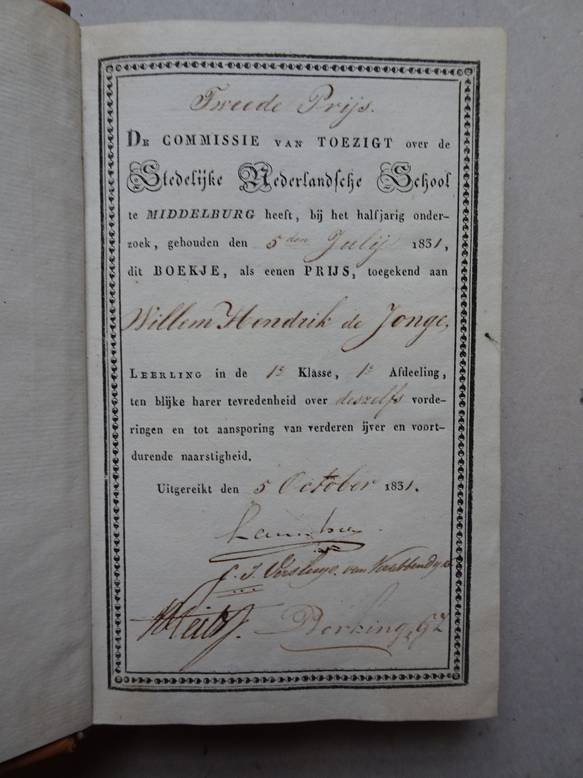 Tweede Prijs.
De COMMISSIE VAN TOEZIGT over de
Stedelijke Nederlandsche School
te MIDDELBURG heeft, bij het halfjarig onder-
zoek, gehouden den 5den Julij 1831,
dit BOEKJE, als eenen PRIJS, toegekend aan
Willem Hendrik de Jonge,
LEERLING in de 1e Klasse, 1e Afdeeling,
ten blijke harer tevredenheid over deszelfs vorde-
ringen en tot aansporing van verderen ijver en voort-
durende naarstigheid.
Uitgereikt den 5 October 1831.
van